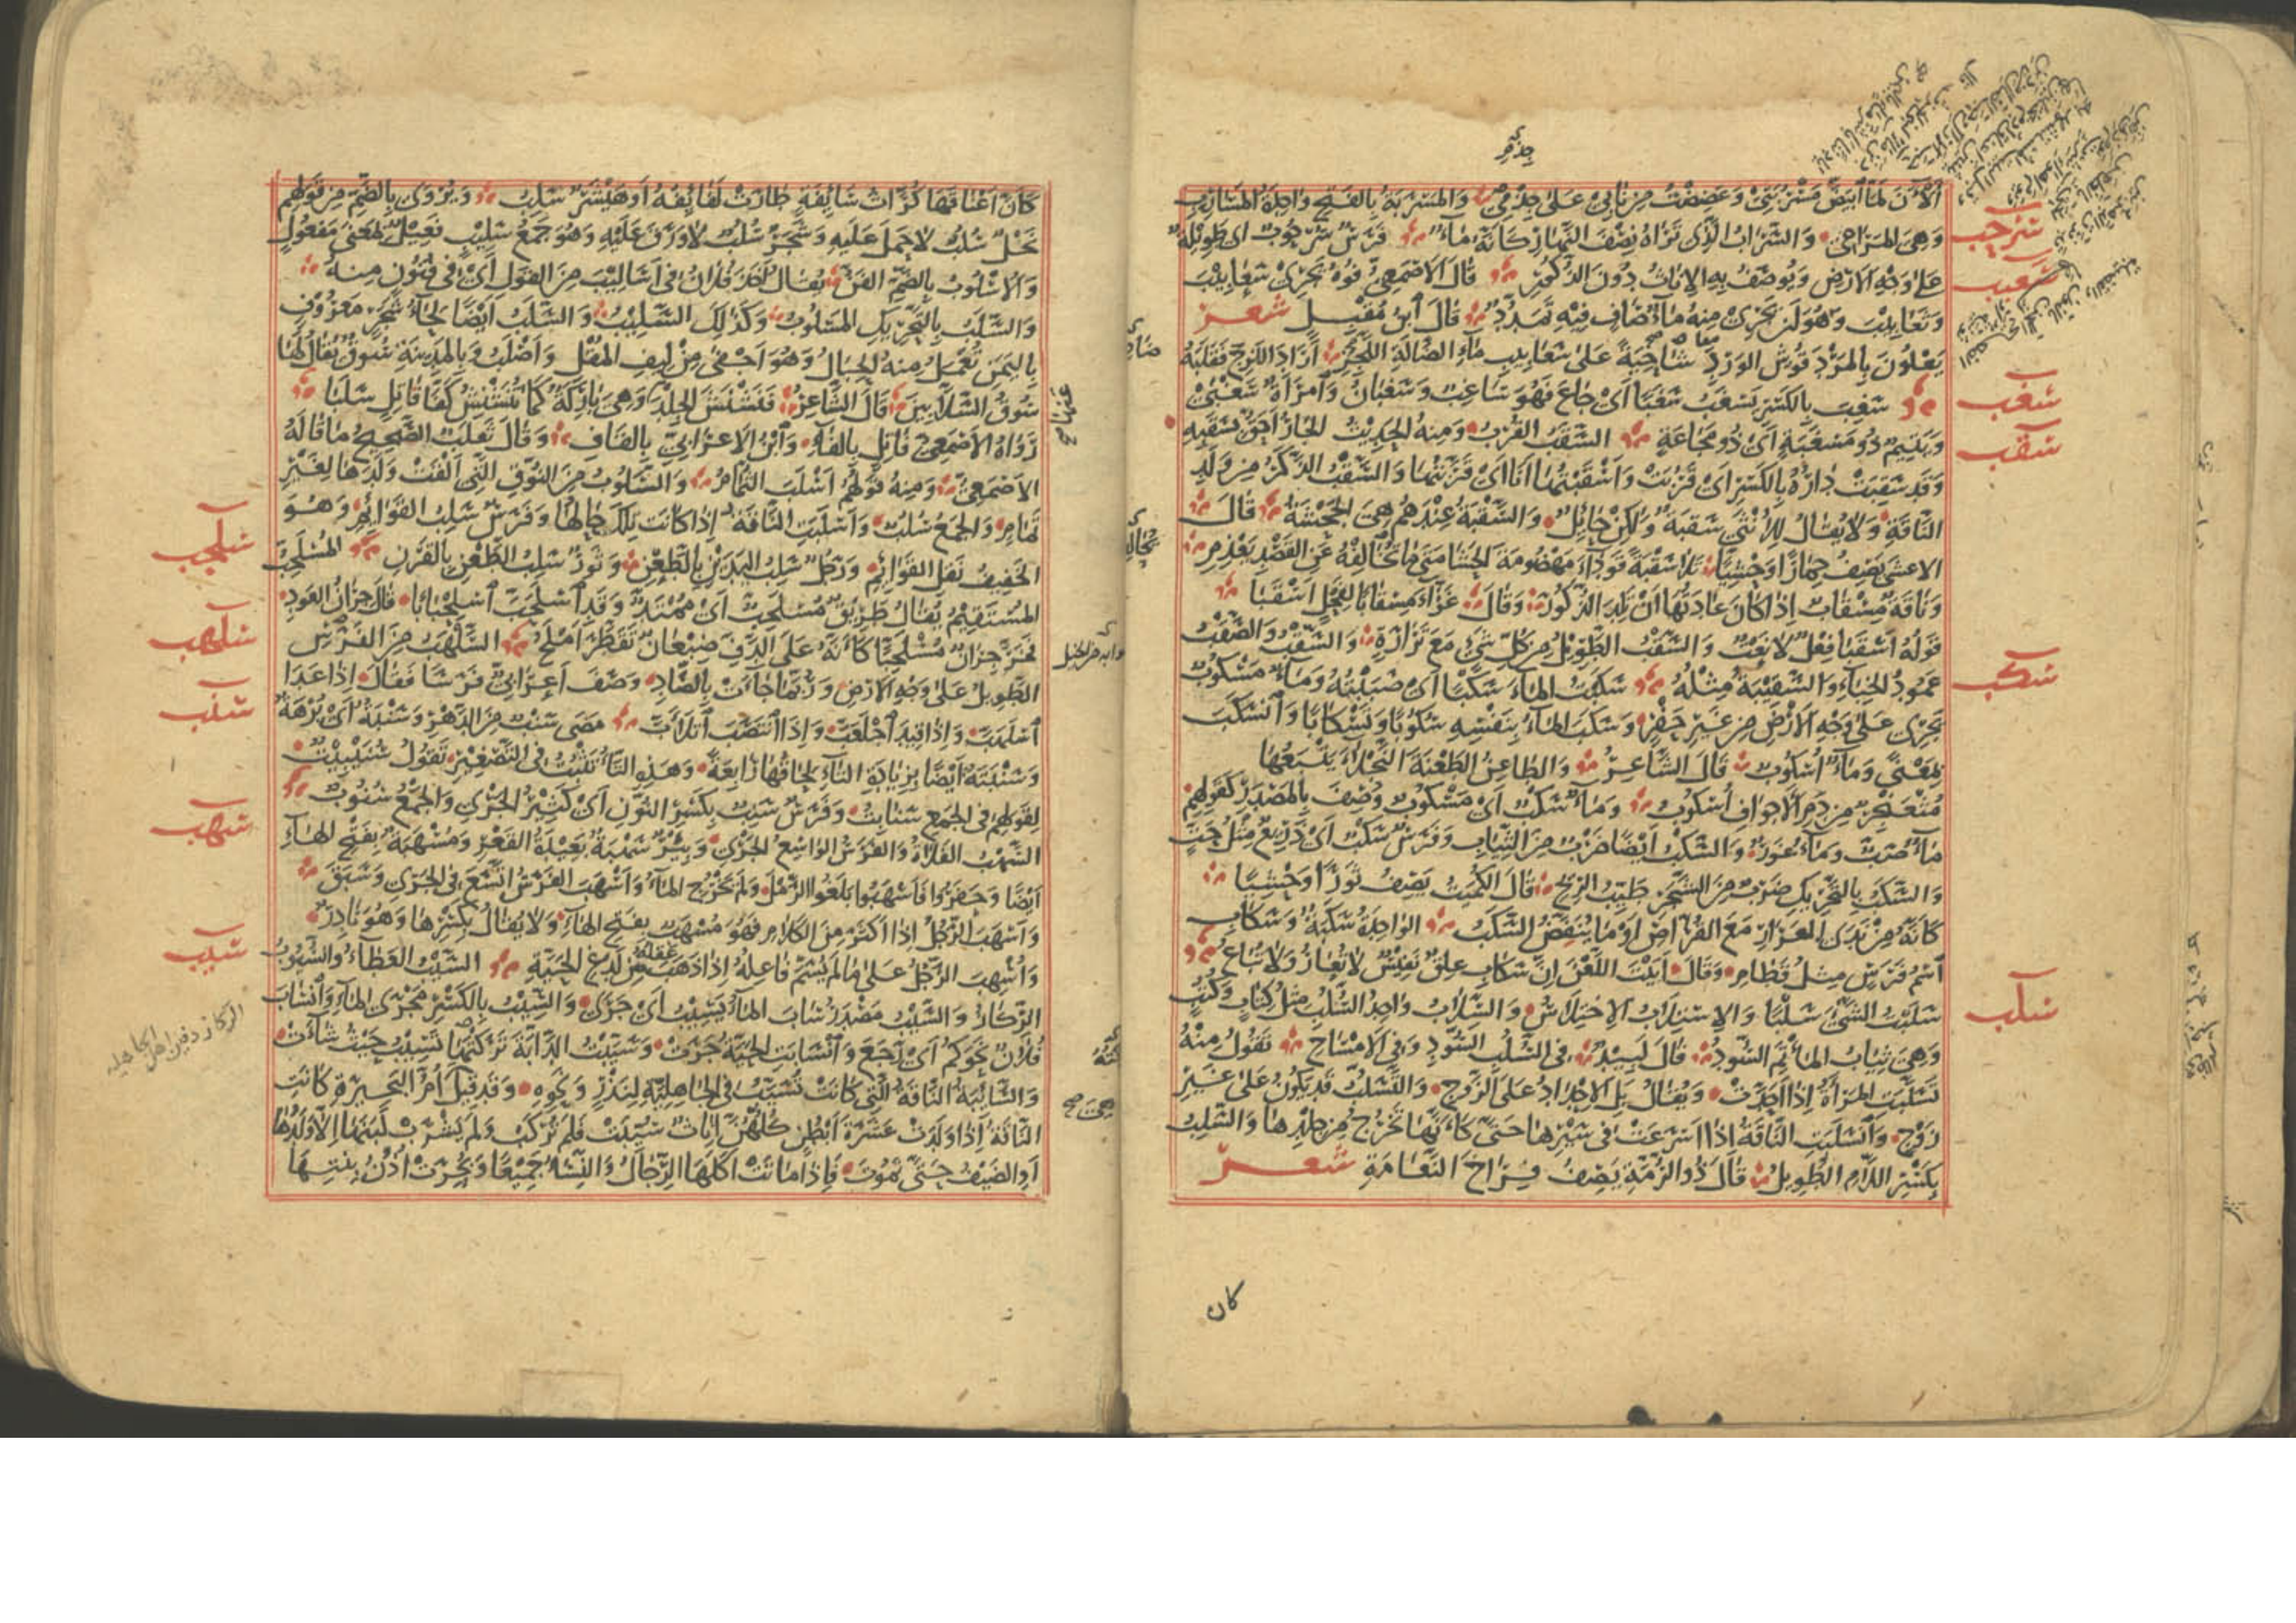 جذمى
ٱلْآنَ لَمَّا ٱبْيَضَّ مَسْرُبَتِيْ وَعَضِضْتُ مِنْ نَابِيْ عَلَىٰ جِذْمِيْ وَالمَسْرَبَةُ بِالفَتْحِ وَاحِدَةُ المَسَارِبِ
وَهِيَ المَرَاعِيْ وَالسَّرَابُ الَّذِي تَرَاهُ نِصْفَ النَّهَارِ كَأَنَّهُ مَاءٌ فَرَسٌ سُرْحُوبٌ اى طَوِيلَةٌ
سرحب
عَلٰى وَجْهِ الاَرْضِ وَيُوصَفُ بِهِ الاِنَاثُ دُونَ الذُّكُورِ قَالَ الاَصْمَعِيُّ فُوْهُ يَجْرِيْ سَعَابِيْبَ
سعب
وَثَعَابِيْبَ وَهُوَ اَنْ يَجْرِيَ مِنْهُ مَاءٌ صَافٍ فِيْهِ تَمَدُّدٌ قَالَ ٱبْنُ مُقْبِلٍ شعر
يَعْلُونَ بِالمَرْدَقُوشِ الوَرْدَ ضَاحِيَةً عَلىٰ سَعَابِيبِ مَاءِ الضَّالَةِ اللَّجِزِ أَرَادَ اللَّزِجَ فَقَلَبَهُ
سَغِبَ بِالكَسْرِ يَسْغَبُ سَغَبًا اَىْ جَاعَ فَهُوَ سَاغِبٌ وَسَغْبَانُ وَٱمْرَأَةٌ سَغْبَىٰ
سغب
وَيَتِيمٌ ذُو مَسْغَبَةٍ اَىْ ذُو مَجَاعَةٍ السَّقَبُ القُرْبُ وَمِنْهُ الحَدِيْثُ الجَارُ اَحَقُّ بِسَقَبِهِ
سقب
وَقَدْ سَقِبَتْ دَارُهُ بِالكَسْرِ اَىْ قَرُبَتْ وَاَسْقَبْتُهَا اَنَا اَىْ قَرَّبْتُهَا وَالسَّقْبُ الذَّكَرُ مِنْ وَلَدِ
النَّاقَةِ وَلَا يُقَالُ لِلْاُنْثَىٰ سَقْبَةٌ وَلٰكِنْ حَائِلٌ وَالسَّقْبَةُ عِنْدَهُمْ هِيَ الجَحْشَةُ قَالَ
الاعشى يَصِفُ حِمَارًا وَحْشِيًّا تَلَا سَقْبَةً قَوْدَاءَ مَهْضُومَةَ الحَشَا مَتىٰ مَا تُخَالِفْهُ عَنِ القَصْدِ يَعْذِمِ
وَنَاقَةٌ مِسْقَابٌ اِذَا كَانَ عَادَتُهَا اَنْ تَلِدَ الذُّكُورَ وَقَالَ غَرَّاءَ مِسْقَابًا لِفَحْلٍ اَسْقَبَا
قَوْلُهُ اَسْقَبَا فِعْلٌ لَا نَعْتٌ وَالسَّقْبُ الطَّوِيْلُ مِنْ كُلِّ شَيْءٍ مَعَ تَرَارَةٍ وَالسَّقْبُ وَالصَّقْبُ
عَمُودُ الخِبَاءِ وَالسَّقِيْبَةُ مِثْلُهُ سَكَبْتُ المَاءَ سَكْبًا اَىْ صَبَبْتُهُ وَمَاءٌ مَسْكُوبٌ
سكب
يَجْرِى عَلىٰ وَجْهِ الاَرْضِ مِنْ غَيْرِ حَفْرٍ وَسَكَبَ المَاءُ بِنَفْسِهِ سُكُوبًا وَتَسْكَابًا وَٱنْسَكَبَ
بِمَعْنًى وَمَاءٌ اُسْكُوبٌ قَالَ الشَّاعِرُ وَالطَّاعِنُ الطَّعْنَةَ النَّجْلَاءَ يَتْبَعُهَا
مُثْعَنْجِرٌ مِنْ دَمِ الاَجْوَافِ اُسْكُوبُ وَمَاءٌ سَكْبٌ اَىْ مَسْكُوبٌ وُصِفَ بِالمَصْدَرِ كَقَوْلِهِمْ
مَاءٌ صَبٌّ وَمَاءٌ غَوْرٌ وَالسَّكْبُ اَيْضًا ضَرْبٌ مِنَ الثِّيَابِ وَفَرَسٌ سَكْبٌ اَىْ ذَرِيْعٌ مِثْلُ حَتٍّ
وَالسَّكَبُ بِالتَّحْرِيْكِ ضَرْبٌ مِنَ الشَّجَرِ طَيِّبُ الرِّيْحِ قَالَ الكُمَيْتُ يَصِفُ ثَوْرًا وَحْشِيًّا
كَأَنَّهُ مِنْ نَدَى العَرَارِ مَعَ القُرَّاصِ اَوْ مَا يُنَفِّضُ السَّكَبُ الوَاحِدَةُ سَكَبَةٌ وَسَكَابِ
ٱسْمُ فَرَسٍ مِثْلُ قَطَامِ وَقَالَ اَبَيْتَ اللَّعْنَ اِنَّ سَكَابِ عِلْقٌ نَفِيْسٌ لَا تُعَارُ وَلَا تُبَاعُ
سَلَبْتُ الشَّيْءَ سَلْبًا وَالاِسْتِلَابُ الاِخْتِلَاسُ وَالسِّلَابُ وَاحِدُ السُّلُبِ مِثْلُ كِتَابٍ وَكُتُبٍ
سلب
وَهِيَ ثِيَابُ المَأْتَمِ السُّودُ قَالَ لَبِيْدٌ فِى السُّلُبِ السُّوْدِ وَفِى الاَمْسَاحِ تَقُولُ مِنْهُ
تَسَلَّبَتِ المَرْأَةُ اِذَا اَحَدَّتْ وَيُقَالُ بَلِ الاِحْدَادُ عَلَى الزَّوْجِ وَالتَّسَلُّبُ قَدْ يَكُونُ عَلىٰ غَيْرِ
زَوْجٍ وَٱنْسَلَبَتِ النَّاقَةُ اِذَا اَسْرَعَتْ فِى سَيْرِهَا حَتّىٰ كَأَنَّهَا تَخْرُجُ مِنْ جِلْدِهَا وَالسَّلِبُ
بِكَسْرِ اللَّامِ الطَّوِيلُ قَالَ ذُوالرُّمَّةِ يَصِفُ فِرَاخَ النَّعَامَةِ شعر
كان
كَأَنَّ اَعْنَاقَهَا كُرَّاثُ سَائِفَةٍ طَارَتْ لَفَائِفُهُ اَوْ هَيْشَرٌ سَلِبُ وَيُرْوَى بِالضَّمِّ مِنْ قَوْلِهِمْ
نَخْلٌ سُلُبٌ لَا حَمْلَ عَلَيْهِ وَشَجَرٌ سُلُبٌ لَا وَرَقَ عَلَيْهِ وَهُوَ جَمْعُ سَلِيْبٍ فَعِيْلٌ بِمَعْنىٰ مَفْعُولٍ
وَالاُسْلُوبُ بِالضَّمِّ الفَنُّ يُقَالُ اَخَذَ فُلَانٌ فِى اَسَالِيْبَ مِنَ القَوْلِ اَىْ فِى فُنُونٍ مِنْهُ
وَالسَّلَبُ بِالتَّحْرِيكِ المَسْلُوبُ وَكَذٰلِكَ السَّلِيْبُ وَالسَّلَبُ اَيْضًا لِحَاءُ شَجَرٍ مَعْرُوفٍ
بِاليَمَنِ تُعْمَلُ مِنْهُ الحِبَالُ وَهُوَ اَجْفىٰ مِنْ لِيفِ المُقْلِ وَاَصْلَبُ وَبِالمَدِينَةِ سُوقٌ يُقَالُ لَهَا
سُوقُ السَّلَّابِيْنَ قَالَ الشَّاعِرُ فَنَشْنَشَ الجِلْدَ وَهْيَ بَارِكَةٌ كَمَا تُنَشْنِشُ كَفَّا قَاتِلٍ سَلَبَا
رَوَاهُ الاَصْمَعِيُّ فَاتِلٍ بِالفَاءِ وَٱبْنُ الاَعْرَابِيِّ بِالقَافِ وَقَالَ ثَعْلَبٌ الصَّحِيْحُ مَا قَالَهُ
الاَصْمَعِيُّ وَمِنْهُ قَوْلُهُمْ اَسْلَبَ الثُّمَامُ وَالسَّلُوبُ مِنَ النُّوقِ الَّتِى اَلْقَتْ وَلَدَهَا لِغَيْرِ
تَمَامٍ وَالجَمْعُ سُلُبٌ وَاَسْلَبَتِ النَّاقَةُ اِذَا كَانَتْ تِلْكَ حَالَهَا وَفَرَسٌ سَلِبُ القَوَائِمِ وَهُوَ
الخَفِيفُ نَقْلِ القَوَائِمِ وَرَجُلٌ سَلِبُ اليَدَيْنِ بِالطَّعْنِ وَثَوْرٌ سَلِبُ الطَّعْنِ بِالقَرْنِ المُسْلَحِبُّ
سلحب
المُسْتَقِيْمُ يُقَالُ طَرِيْقٌ مُسْلَحِبٌّ اَىْ مُمْتَدٌّ وَقَدِ ٱسْلَحَبَّ ٱسْلِحْبَابًا قَالَ جِرَانُ العَوْدِ
فَخَرَّ جِرَانٌ مُسْلَحِبًّا كَأَنَّهُ عَلَى الدَّفِّ ضِبْعَانٌ تَقَطَّرَ اَمْلَحُ السَّلْهَبُ مِنَ الفَرَسِ
سلهب
الطَّوِيلُ عَلىٰ وَجْهِ الاَرْضِ وَرُبَّمَا جَاءَ بِالصَّادِ وَصَفَ اَعْرَابِيٌّ فَرَسًا فَقَالَ اِذَا عَدَا
ٱسْلَهَبَّ وَاِذَا قِيدَ ٱجْلَعَبَّ وَاِذَا ٱنْتَصَبَ ٱتْلَأَبَّ مَضَى سَنْبٌ مِنَ الدَّهْرِ وَسَنْبَةٌ اَىْ بُرْهَةٌ
سنب
وَسَنْبَتَةٌ اَيْضًا بِزِيَادَةِ التَّاءِ لِحَاقُهَا رَابِعَةً وَهٰذِهِ التَّاءُ تَثْبُتُ فِى التَّصْغِيْرِ تَقُولُ سُنَيْبِتَةٌ
لِقَوْلِهِمْ فِى الجَمْعِ سَنَابِتُ وَفَرَسٌ سَنِبٌ بِكَسْرِ النُّونِ اَىْ كَثِيْرُ الجَرْىِ وَالجَمْعُ سُنُوبٌ
السَّهْبُ الفَلَاةُ وَالفَرَسُ الوَاسِعُ الجَرْىِ وَبِئْرٌ سَهْبَةٌ بَعِيْدَةُ القَعْرِ وَمُسْهَبَةٌ بِفَتْحِ الهَاءِ
سهب
اَيْضًا وَحَفَرُوا فَاَسْهَبُوا بَلَغُوا الرَّمْلَ وَلَمْ يَخْرُجِ المَاءُ وَاَسْهَبَ الفَرَسُ اتَّسَعَ فِى الجَرْىِ وَسَبَقَ
وَاَسْهَبَ الرَّجُلُ اِذَا اَكْثَرَ مِنَ الكَلَامِ فَهُوَ مُسْهَبٌ بِفَتْحِ الهَاءِ وَلَا يُقَالُ بِكَسْرِهَا وَهُوَ نَادِرٌ
وَاُسْهِبَ الرَّجُلُ عَلىٰ مَا لَمْ يُسَمَّ فَاعِلُهُ اِذَا ذَهَبَ عَقْلُهُ مِنْ لَدْغِ الحَيَّةِ السَّيْبُ العَطَاءُ وَالسُّيُوبُ
سيب
الرِّكَازُ وَالسَّيْبُ مَصْدَرُ سَابَ المَاءُ يَسِيْبُ اَىْ جَرَى وَالسِّيْبُ بِالكَسْرِ مَجْرَى المَاءِ وَٱنْسَابَ
الركاز دفين اهل الجاهلية
فُلَانٌ نَحْوَكُمْ اَىْ رَجَعَ وَٱنْسَابَتِ الحَيَّةُ جَرَتْ وَسَيَّبْتُ الدَّابَّةَ تَرَكْتُهَا تَسِيْبُ حَيْثُ شَاءَتْ
وَالسَّائِبَةُ النَّاقَةُ الَّتِى كَانَتْ تُسَيَّبُ فِى الجَاهِلِيَّةِ لِنَذْرٍ وَنَحْوِهِ وَقَدْ قِيْلَ اُمُّ البَحِيْرَةِ كَانَتِ
النَّاقَةُ اِذَا وَلَدَتْ عَشَرَةَ اَبْطُنٍ كُلُّهُنَّ اِنَاثٌ سُيِّبَتْ فَلَمْ تُرْكَبْ وَلَمْ يَشْرَبْ لَبَنَهَا اِلَّا وَلَدُهَا
اَوِ الضَّيْفُ حَتّىٰ تَمُوتَ فَاِذَا مَاتَتْ اَكَلَهَا الرِّجَالُ وَالنِّسَاءُ جَمِيْعًا وَبُحِرَتْ اُذُنُ بِنْتِهَا